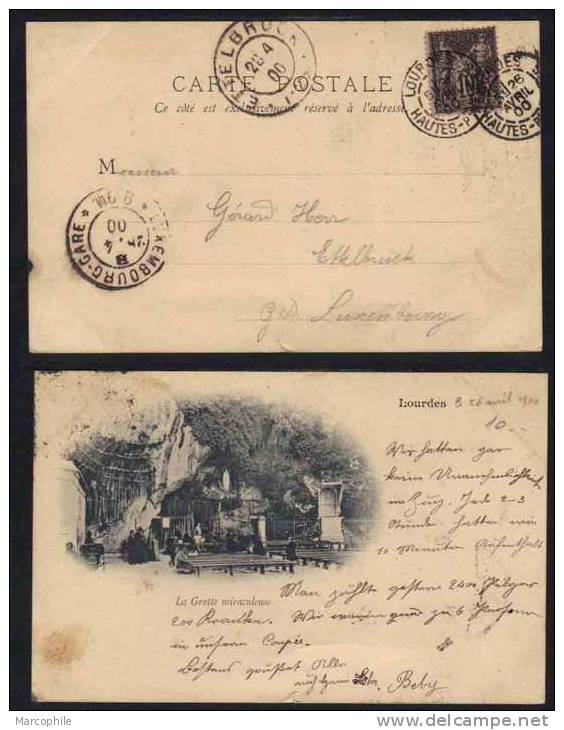 ETTELBRUCK
28 4
00
CARTE POSTALE
Ce côté est exclusivement réservé à l'adresse
LOURDES
HAUTES-P
26
AVRIL
00
HAUTES-P
Monsieur
LUXEMBOURG-GARE
00
8-9M
Gérard Herr
Ettelbruck
Gd Luxembourg
Lourdes le 26 avril 1900
10.-
Wir hatten gar
keine Unannehmlichkeit
im Zug. Jede 2-3
Stunde hatten wir
10 Minuten Aufenthalt
Man zählte gestern 2400 Pilger
La Grotte miraculeuse
200 Kranke. Wir waren nur zu 6 Personen
in unserm Coupée.
Bestens grüßet Alle
Beby
Marcophile
www.delcampe.net